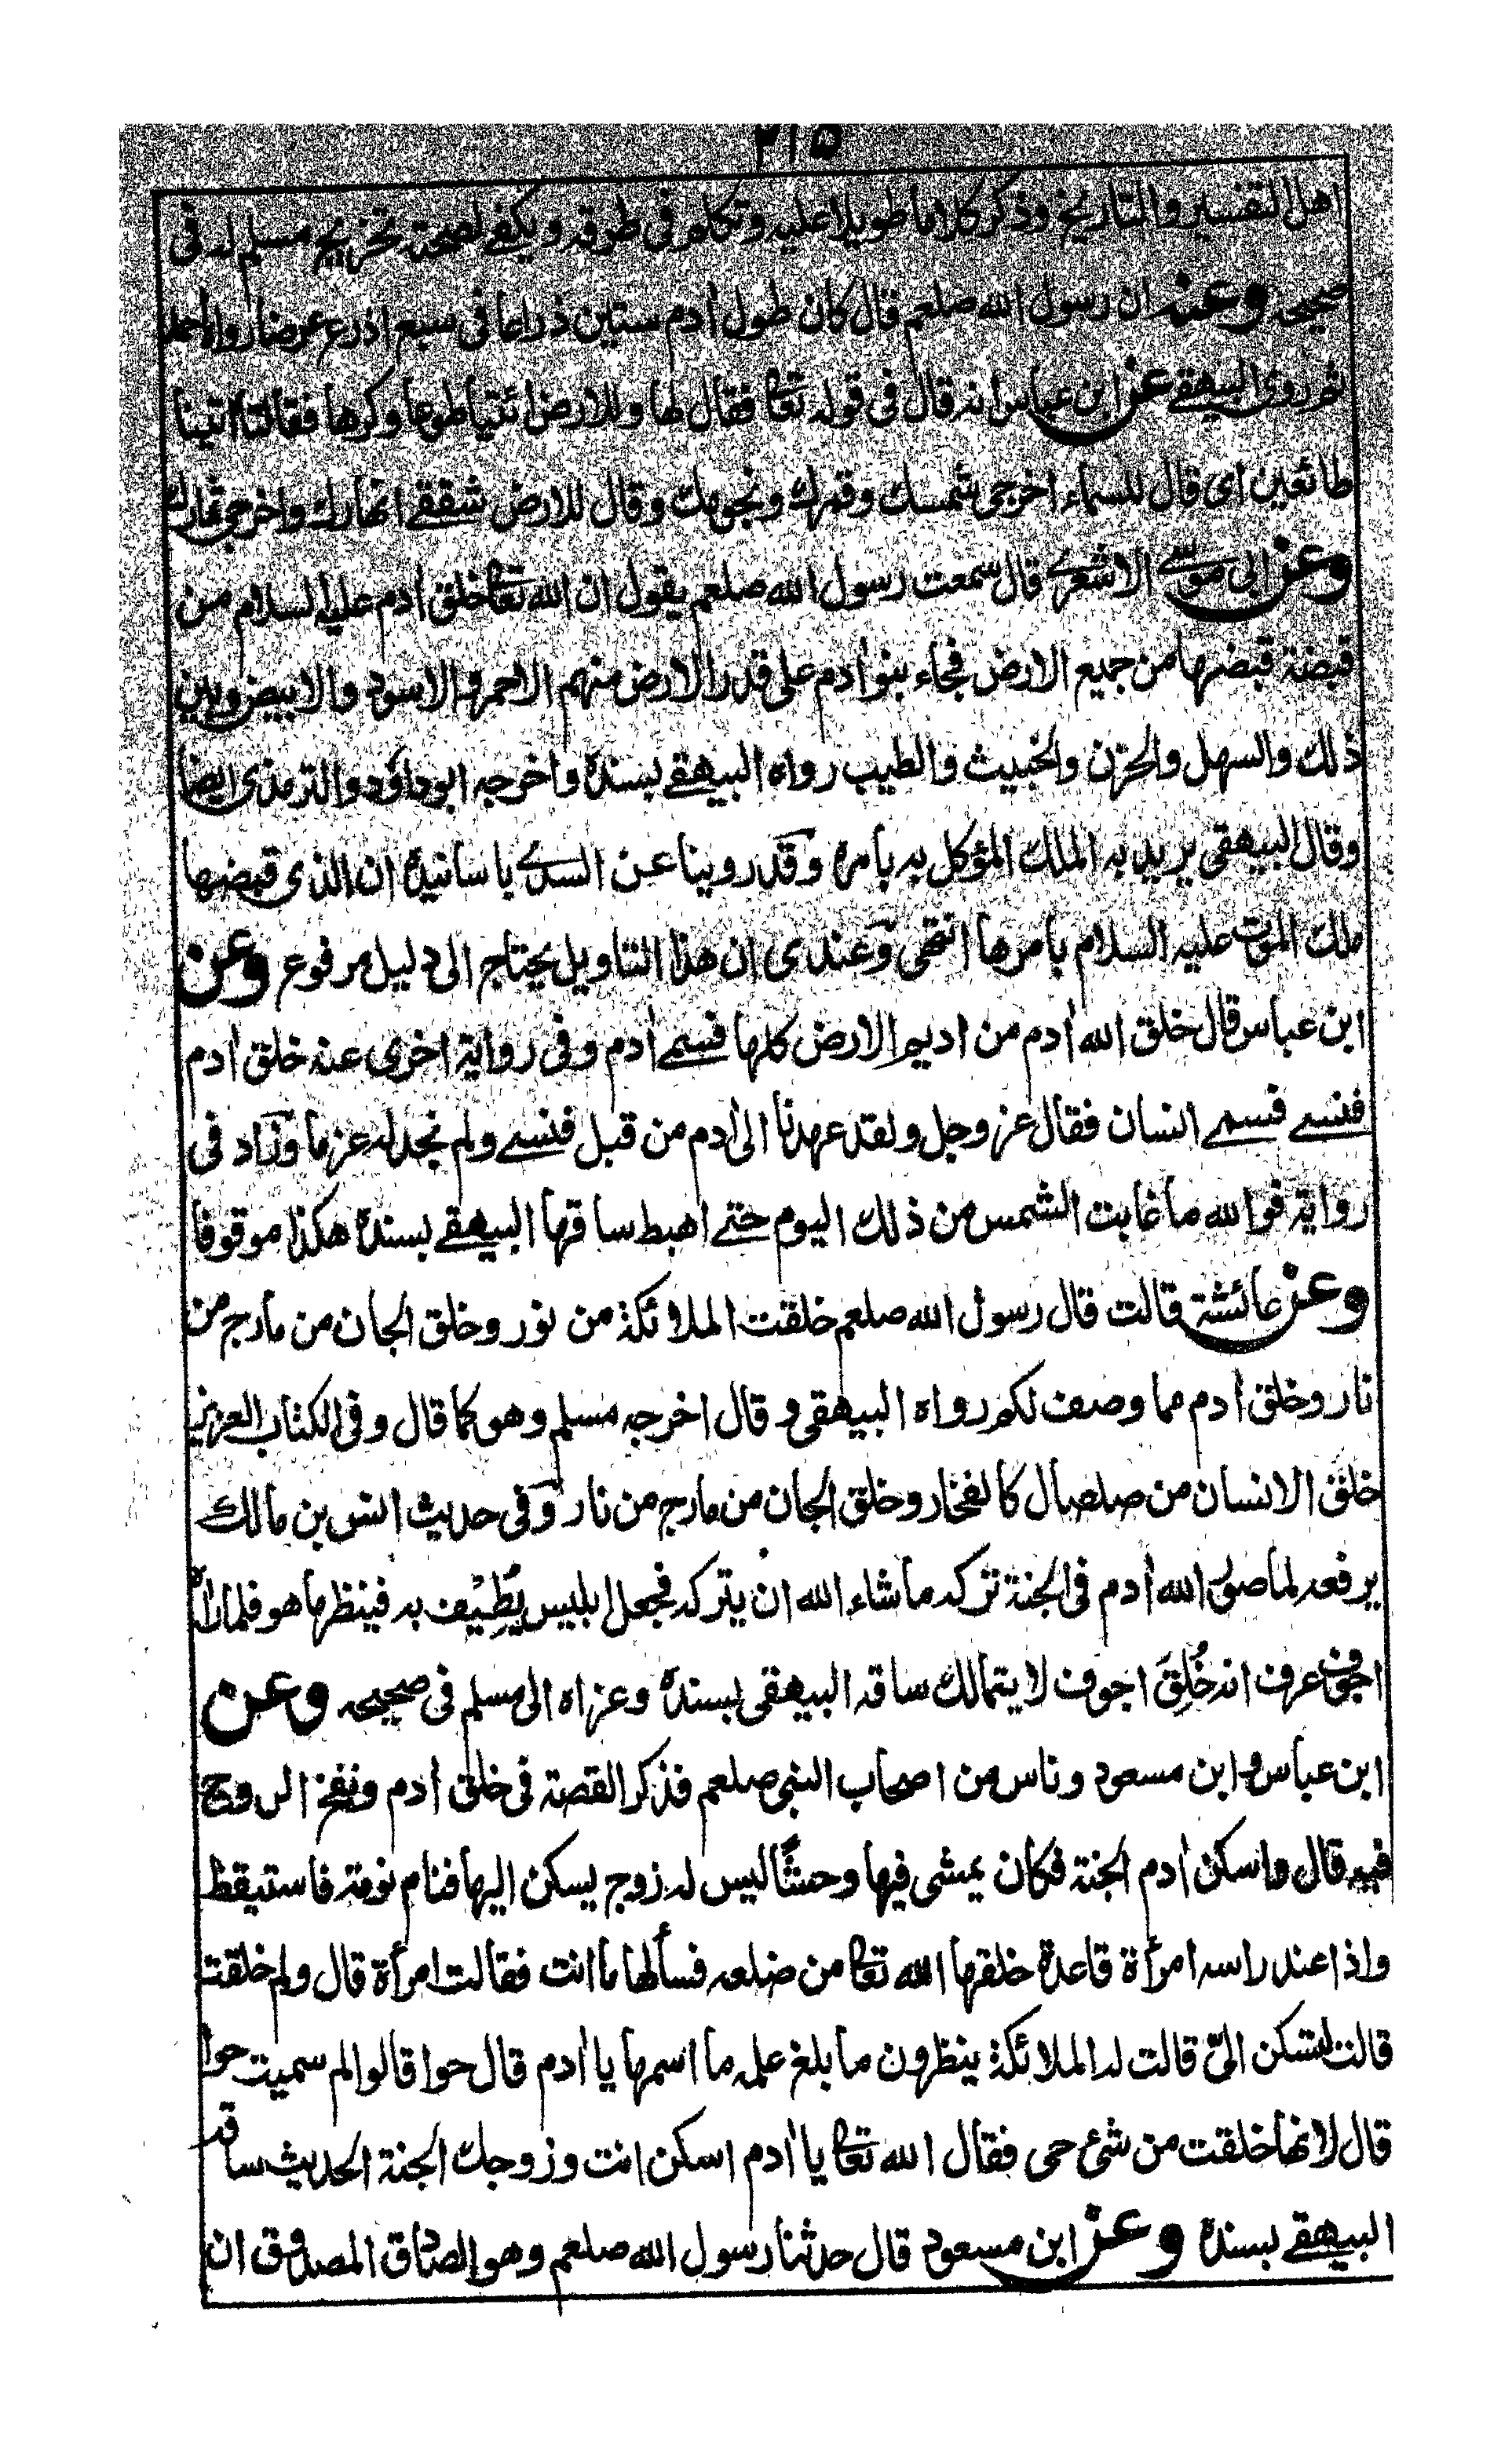 ٢١٥
اهل التفسير والتاريخ وذكر كلاما طويلا عليه وتكلم فى طرقه ويكفے لصحته تخريج مسلم له فى
صحيحه وعنه ان رسول الله صلعم قال كان طول اٰدم ستين ذراعا فى سبع اذرع عرضا رواه احمد
ثم روى البيهقے عن ابن عباس انه قال فى قوله تعالى فقال لها وللارض ائتيا طوعا وكرها فقالتا اتينا
طائعين اى قال للسماء اخرجى شمسك وقمرك ونجومك وقال للارض شققے انهارك واخرجى ثمارك
وعن ابى موسےٰ الاشعرے قال سمعت رسول الله صلعم يقول ان الله تعالى خلق اٰدم عليه السلام من
قبضة قبضها من جميع الارض فجاء بنو اٰدم على قدر الارض منهم الاحمر والاسود والابيض وبين
ذلك والسهل والحزن والخبيث والطيب رواه البيهقے بسنده واخرجه ابو داؤد والترمذى ايضا
وقال البيهقى يريد به الملك المؤكل به بامره وقد روينا عن السدے باسانيده ان الذى قبضها
ملك الموت عليه السلام بامرها انتهى وعندى ان هذا التاويل يحتاج الى دليل مرفوع وعن
ابن عباس قال خلق الله اٰدم من اديم الارض كلها فسمے اٰدم وفى رواية اخرى عنه خلق اٰدم
فنسے فسمے انسان فقال عز وجل ولقد عهدنا الى اٰدم من قبل فنسے ولم نجد له عزما وزاد فى
رواية فوالله ما غابت الشمس من ذلك اليوم حتے اهبط ساقها البيهقے بسنده هكذا موقوفا
وعن عائشة قالت قال رسول الله صلعم خلقت الملائكة من نور وخلق الجان من مارج من
نار وخلق اٰدم مما وصف لكم رواه البيهقى وقال اخرجه مسلم وهو كما قال وفى الكتاب العزيز
خلق الانسان من صلصال كالفخار وخلق الجان من مارج من نار وفى حديث انس بن مالك
يرفعه لما صور الله اٰدم فى الجنة تركه ما شاء الله ان يتركه فجعل ابليس يُطِيْف به فينظر ما هو فلما راٰه
اجوف عرف انه خُلِقَ اجوف لا يتمالك ساقه البيهقى بسنده وعزاه الى مسلم فى صحيحه وعن
ابن عباس وابن مسعود وناس من اصحاب النبى صلعم فذكر القصة فى خلق اٰدم ونفخ الروح
فيه قال واسكن اٰدم الجنة فكان يمشى فيها وحشًا ليس له زوج يسكن اليها فنام نومة فاستيقظ
واذا عند راسه امرأة قاعدة خلقها الله تعالى من ضلعه فسألها ما انت فقالت امرأة قال ولم خلقت
قالت لتسكن الىّ قالت له الملائكة ينظرون ما بلغ علمه ما اسمها يا اٰدم قال حوا قالوا لم سميت حوا
قال لانها خلقت من شئ حى فقال الله تعالى يا اٰدم اسكن انت وزوجك الجنة الحديث ساقه
البيهقے بسنده وعن ابن مسعود قال حدثنا رسول الله صلعم وهو الصادق المصدوق ان